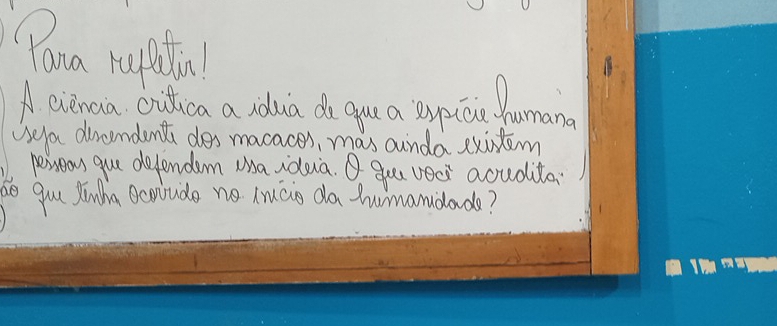 Para refletir!
A ciência critica a ideia de que a espécie humana
seja descendente dos macacos, mas ainda existem
pessoas que defendem essa ideia. O que você acredita
ão que tenha ocorrido no início da humanidade?